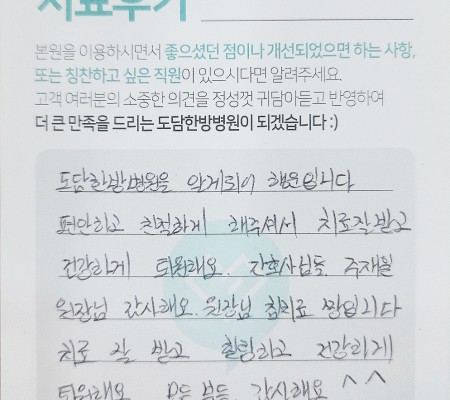 치료후기
본원을 이용하시면서 좋으셨던 점이나 개선되었으면 하는 사항,
또는 칭찬하고 싶은 직원이 있으시다면 알려주세요.
고객 여러분의 소중한 의견을 정성껏 귀담아듣고 반영하여
더 큰 만족을 드리는 도담한방병원이 되겠습니다 :)
도담한방병원을 알게되어 행운입니다
편안하고 친절하게 해주셔서 치료잘받고
건강하게 퇴원해요. 간호사님들. 주재월
원장님 감사해요. 원장님 침치료 짱입니다
치료 잘 받고 힐링하고 건강하게
퇴원해요 모두 분들 감사해요 ^^